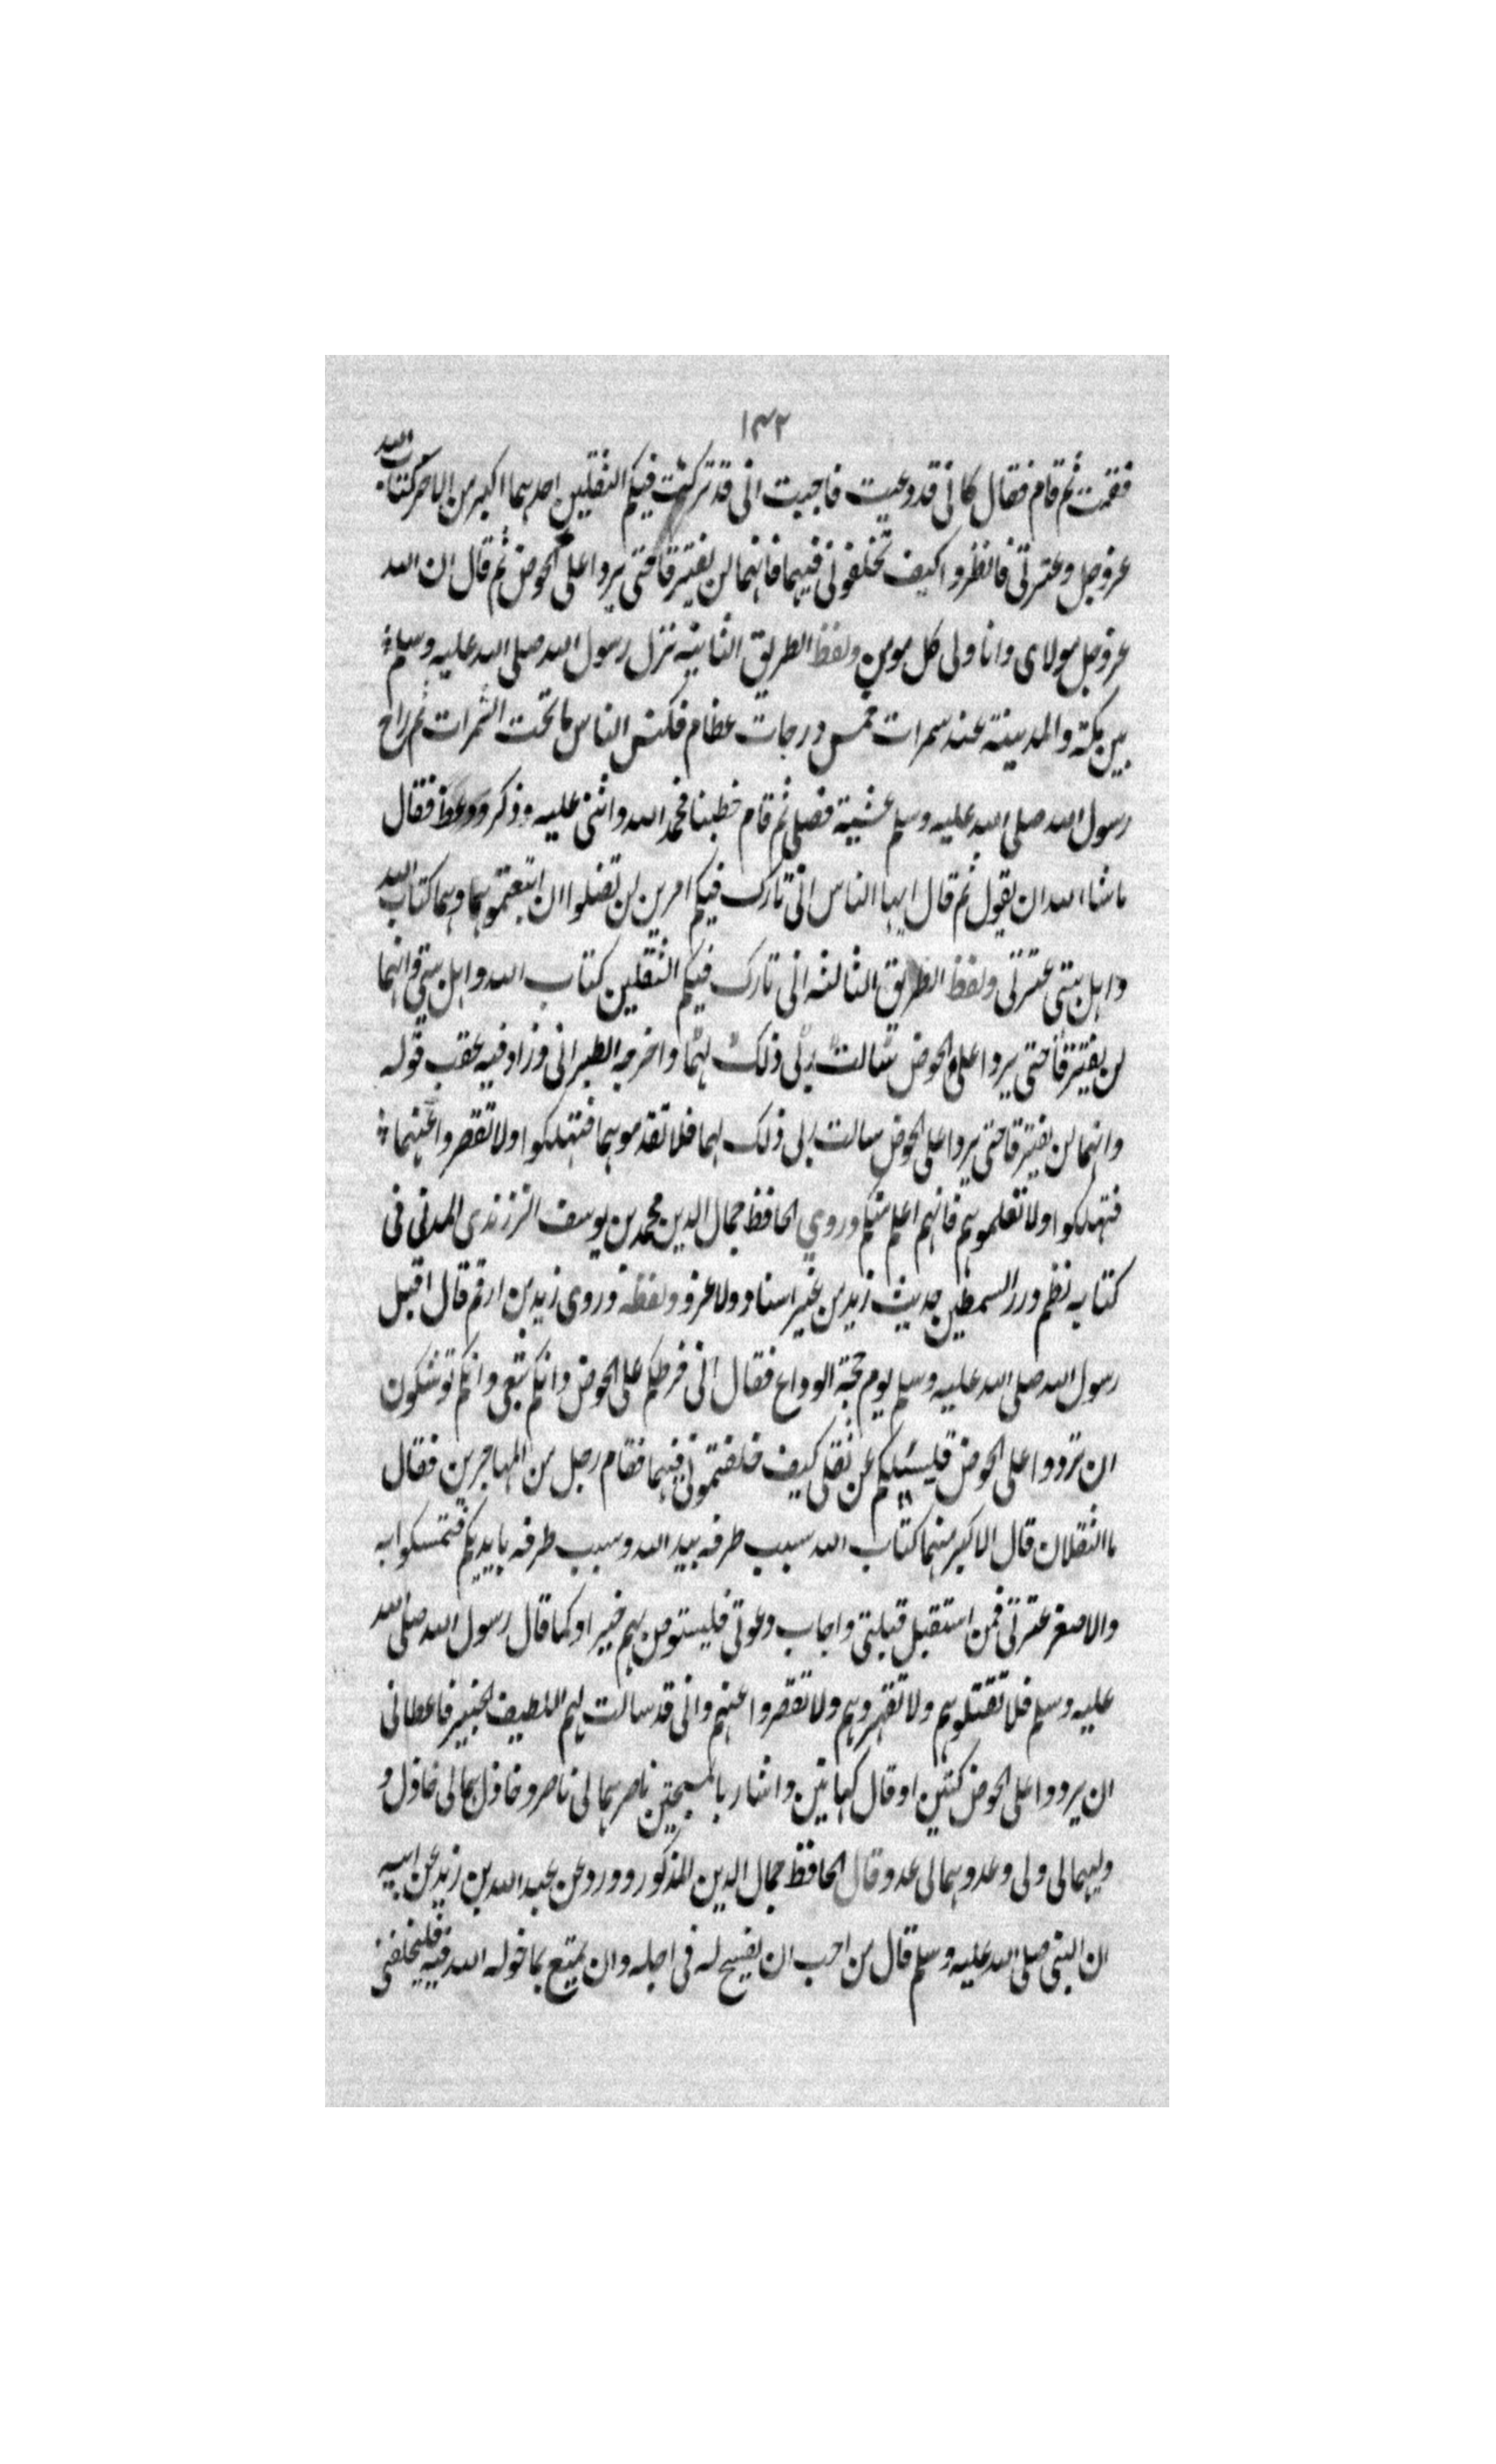 ١٣٢
فقمت ثم قام فقال كانى قد دعيت فاجبت انى قد تركت فيكم الثقلين احدهما اكبر من الاخر كتاب الله
عزوجل وعترتى فانظروا كيف تخلفونى فيهما فانهما لن يفترقا حتى يردا على الحوض ثم قال ان الله
عزوجل مولاى وانا ولى كل مومن ولفظ الطريق الثانيه نزل رسول الله صلى الله عليه وسلم
بين مكة والمدينة عند سمرات خمس درجات عظام فكنس الناس ما تحت الشمرات ثم راح
رسول الله صلى الله عليه وسلم عشية فصلى ثم قام خطبنا فحمد الله واثنى عليه وذكر ووعظ فقال
ماشاء الله ان يقول ثم قال ايها الناس انى تارك فيكم امرين لن تضلوا ان اتبعتموهما وهما كتاب الله
واهل بيتى عترتى ولفظ الطريق الثالثه انى تارك فيكم الثقلين كتاب الله واهل بيتى وانهما
لن يفترقا حتى يردا على الحوض سالت ربى ذلك لهما واخرجه الطبرانى وزاد فيه عقب قوله
وانهما لن يفترقا حتى يردا على الحوض سالت ربى ذلك لهما فلا تقدموهما فتهلكوا ولا تقصروا عنهما
فتهلكوا ولا تعلموهم فانهم اعلم منكم وروي الحافظ جمال الدين محمد بن يوسف الزرندى المدنى فى
كتابه نظم درر السمطين حديث زيد من غير اسناد ولا عزو ولفظه وروى زيد بن ارقم قال اقبل
رسول الله صلى الله عليه وسلم يوم حجة الوداع فقال انى فرطكم على الحوض وانكم تبعى وانكم توشكون
ان تردوا على الحوض فليسئلكم عن ثقلى كيف خلفتمونى فيهما فقام رجل من المهاجرين فقال
ما الثقلان قال الاكبر منهما كتاب الله سبب طرفه بيد الله وسبب طرفه بايديكم فتمسكوا به
والاصغر عترتى فمن استقبل قبلتى واجاب دعوتى فليستوص بهم خير او كما قال رسول الله صلى الله
عليه وسلم فلا تقتلوهم ولا تقهروهم ولا تقصروا عنهم وانى قد سالت لهم اللطيف الخبير فاعطانى
ان يردوا على الحوض كتين او قال كهاتين واشار بالمسبحتين ناصرهما لى ناصر وخاذلهما لى خاذل و
وليهما لى ولى وعدوهما لى عدو قال الحافظ جمال الدين المذكور وورد عن عبد الله بن زيد عن ابيه
ان النبى صلى الله عليه وسلم قال من احب ان يفسح له فى اجله وان يمتع بما خوله الله فيه فليخلفنى